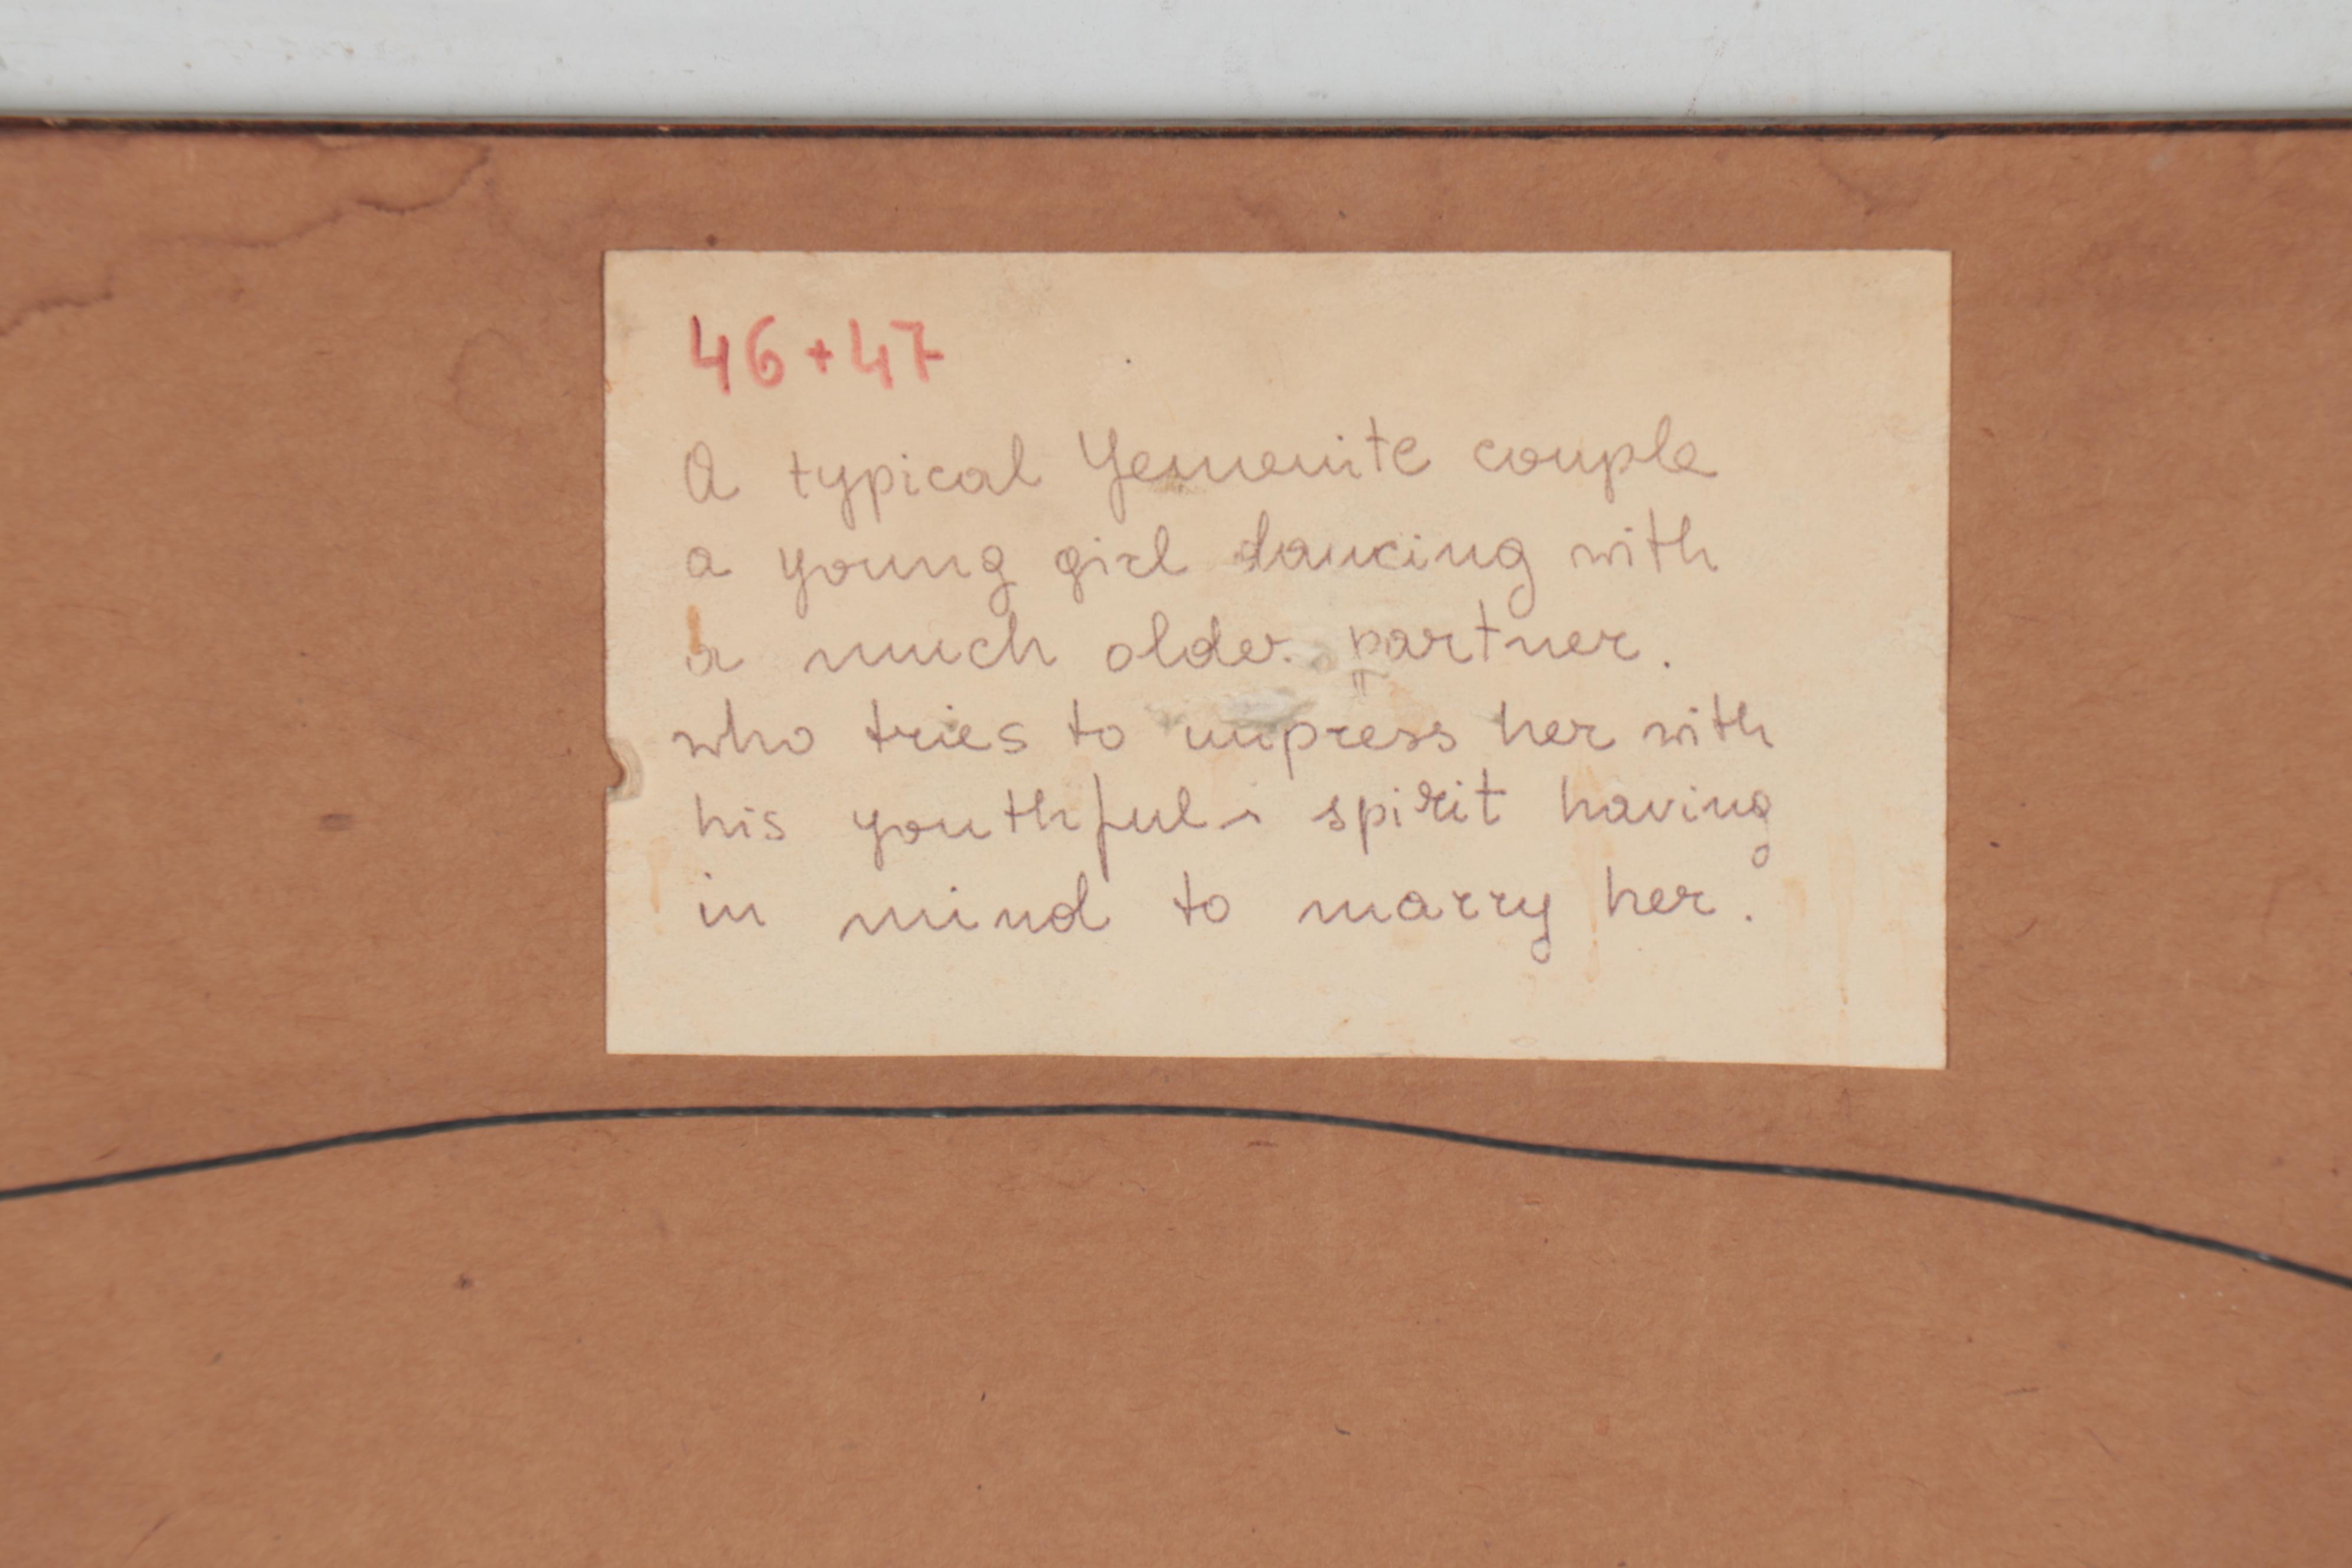 46+47
A typical Yemenite couple
a young girl dancing with
a much older partner.
who tries to impress her with
his youthful spirit having
in mind to marry her.